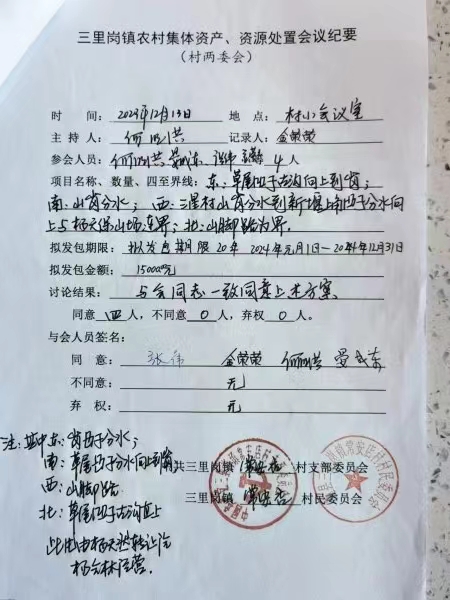 三里岗镇农村集体资产、资源处置会议纪要
（村两委会）
时 间：2023年12月13日 地 点：村小会议室
主 持 人：何 洪 记录人：金荣荣
参会人员：何 洪 晏成东 张伟 4人
项目名称、数量、四至界线：东：草尾凹子右沟向上到岗；
南：山岗分水；西：三里村山岗分水到新堰上 凹子分水向
上与杨天保山场连界；北：山脚路为界。
拟发包期限：拟发包期限20年 2024年元月1日—2044年12月31日
拟发包金额：15000元
讨论结果：与会同志一致同意上述方案。
同意 四 人，不同意 0 人，弃权 0 人。
与会人员签名：
同 意： 张伟 金荣荣 何 洪 晏成东
不同意： 无
弃 权： 无
注：其中东：岗 分水；
南：草尾凹子分水向上到岗
西：山脚路
北：草尾凹子右沟直上
共三里岗镇 常安店 村支部委员会
三里岗镇 常安店 村民委员会
此山由杨天 转让给
杨会林经营。
三里岗镇常安店村村民委员会